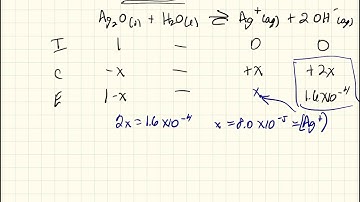 Ag₂O(s) + H₂O(l) ⇌ Ag⁺(aq) + 2 OH⁻(aq)
I 1 — 0 0
C -x — +x +2x
E 1-x — x 1.6x10⁻⁴
2x = 1.6x10⁻⁴ x = 8.0x10⁻⁵ = [Ag⁺]